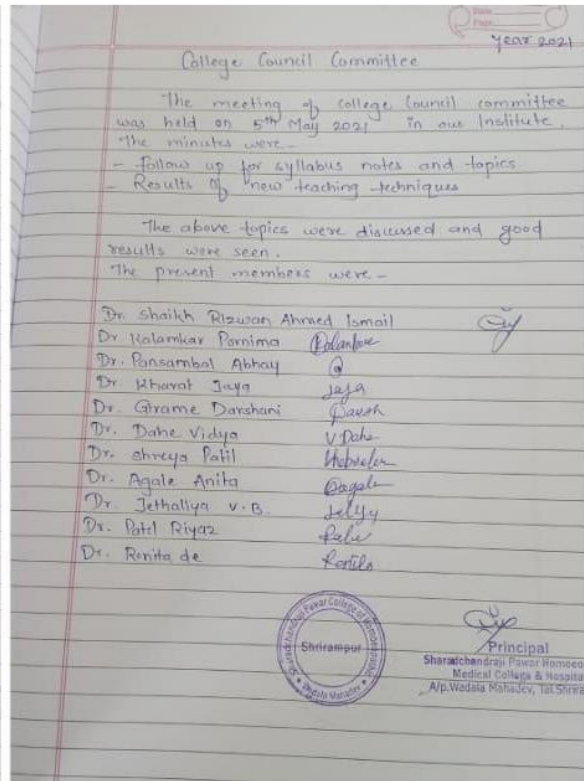 Date
Page
Year 2021
College Council Committee
The meeting of college Council committee
was held on 5th May 2021 in our Institute.
The minutes were-
- follow up for syllabus notes and topics
- Results of new teaching techniques
The above topics were discussed and good
results were seen.
The present members were -
Dr. Shaikh Rizwan Ahmed Ismail
Dr Kalamkar Pornima
Dr. Pansambal Abhay
Dr. Kharat Jaya
Dr. Girame Darshani
Dr. Dahe Vidya V Dahe
Dr. Shreya Patil
Dr. Agale Anita
Dr. Jethaliya V.B.
Dr. Patel Riyaz
Dr. Ronita de
Sharadchandraji Pawar College of Homoeopathic
Shrirampur
Wadala Mahadev
Principal
Sharadchandraji Pawar Homoeo
Medical College & Hospita
A/p.Wadala Mahadev, Tal.Shrira